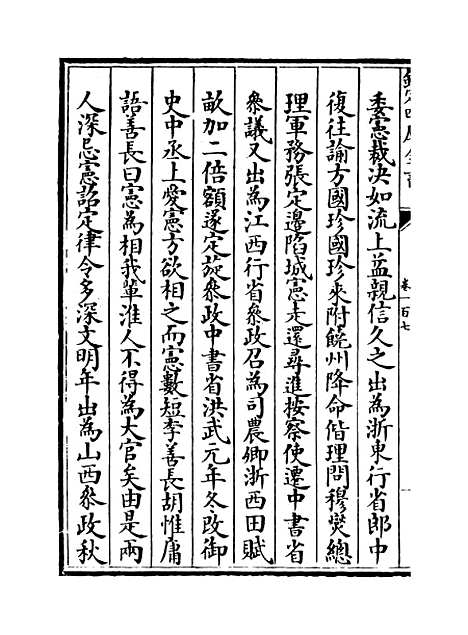 欽定四庫全書
卷一百七
委憲裁决如流上益親信久之出為浙東行省郎中
復往諭方國珍國珍來附饒州降命偕理問穆爕總
理軍務張定邊陷城憲走還尋進按察使遷中書省
叅議又出為江西行省叅政召為司農卿浙西田賦
畝加二倍額遂定旋叅政中書省洪武元年冬改御
史中丞上愛憲方欲相之而憲數短李善長胡惟庸
語善長曰憲為相我輩淮人不得為大官矣由是兩
人深忌憲詔定律令多深文明年出為山西叅政秋